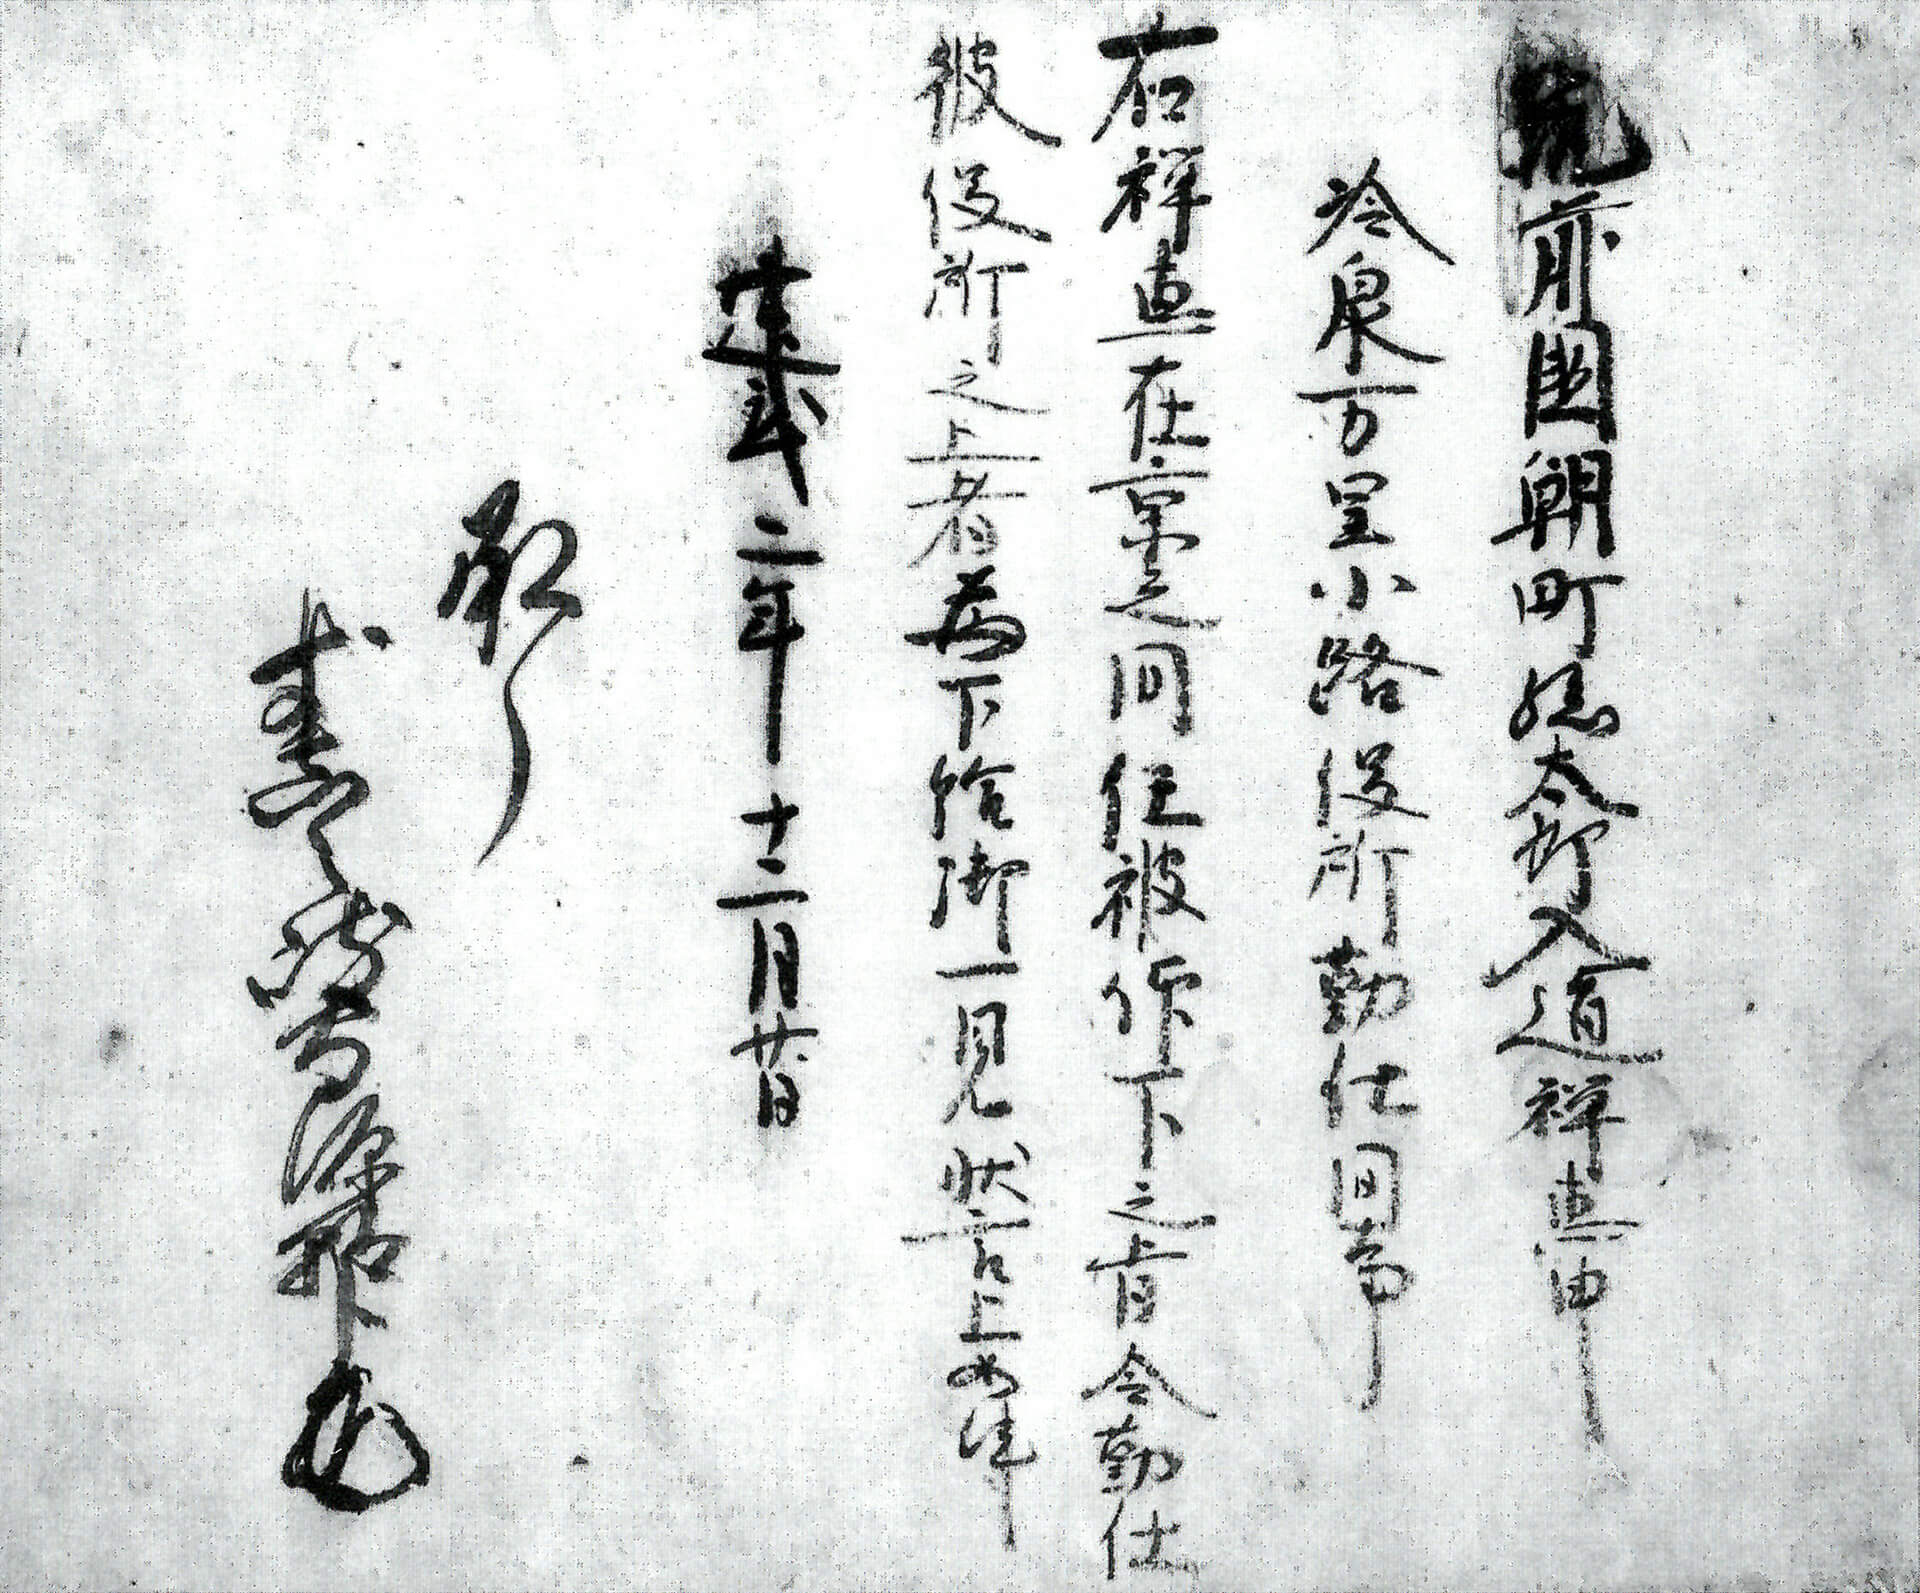 筑前國朝町孫太郎入道禅恵申
冷泉万里小路役所勤仕間事
右禅恵在京之間任被仰下之旨令勤仕
彼役所之上者為下給御一見状言上如件
建武二年十二月廿日
承了